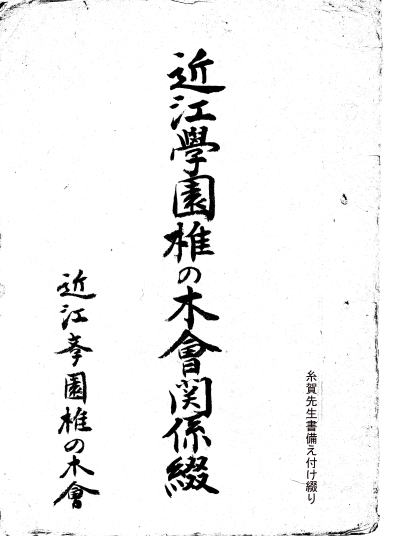 糸賀先生書備え付け綴り
近江學園椎の木會関係綴
近江学園椎の木會